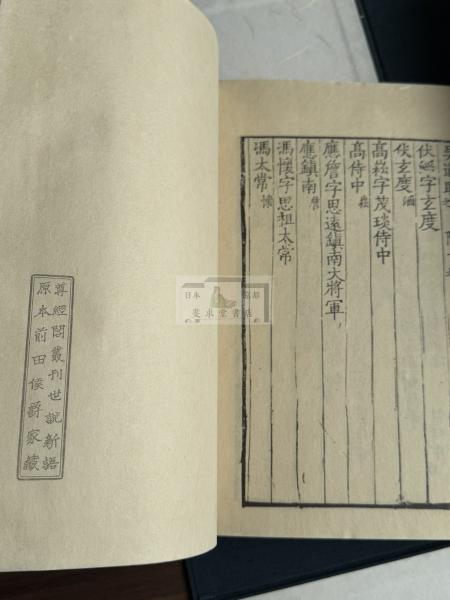 伏字玄度
伏玄度 滔
高崧字茂琰侍中
高侍中 崧
應詹字思遠鎮南大將軍
應鎮南 詹
馮懷字思祖太常
馮太常 懷
尊經閣叢刊世說新語
原本前田侯爵家藏
日本 京都
斐求堂書店